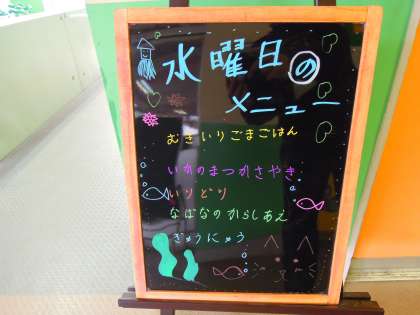 水曜日の
メニュー
むぎいりごまごはん
いかのまつかさやき
いりどり
なばなのからしあえ
ぎゅうにゅう